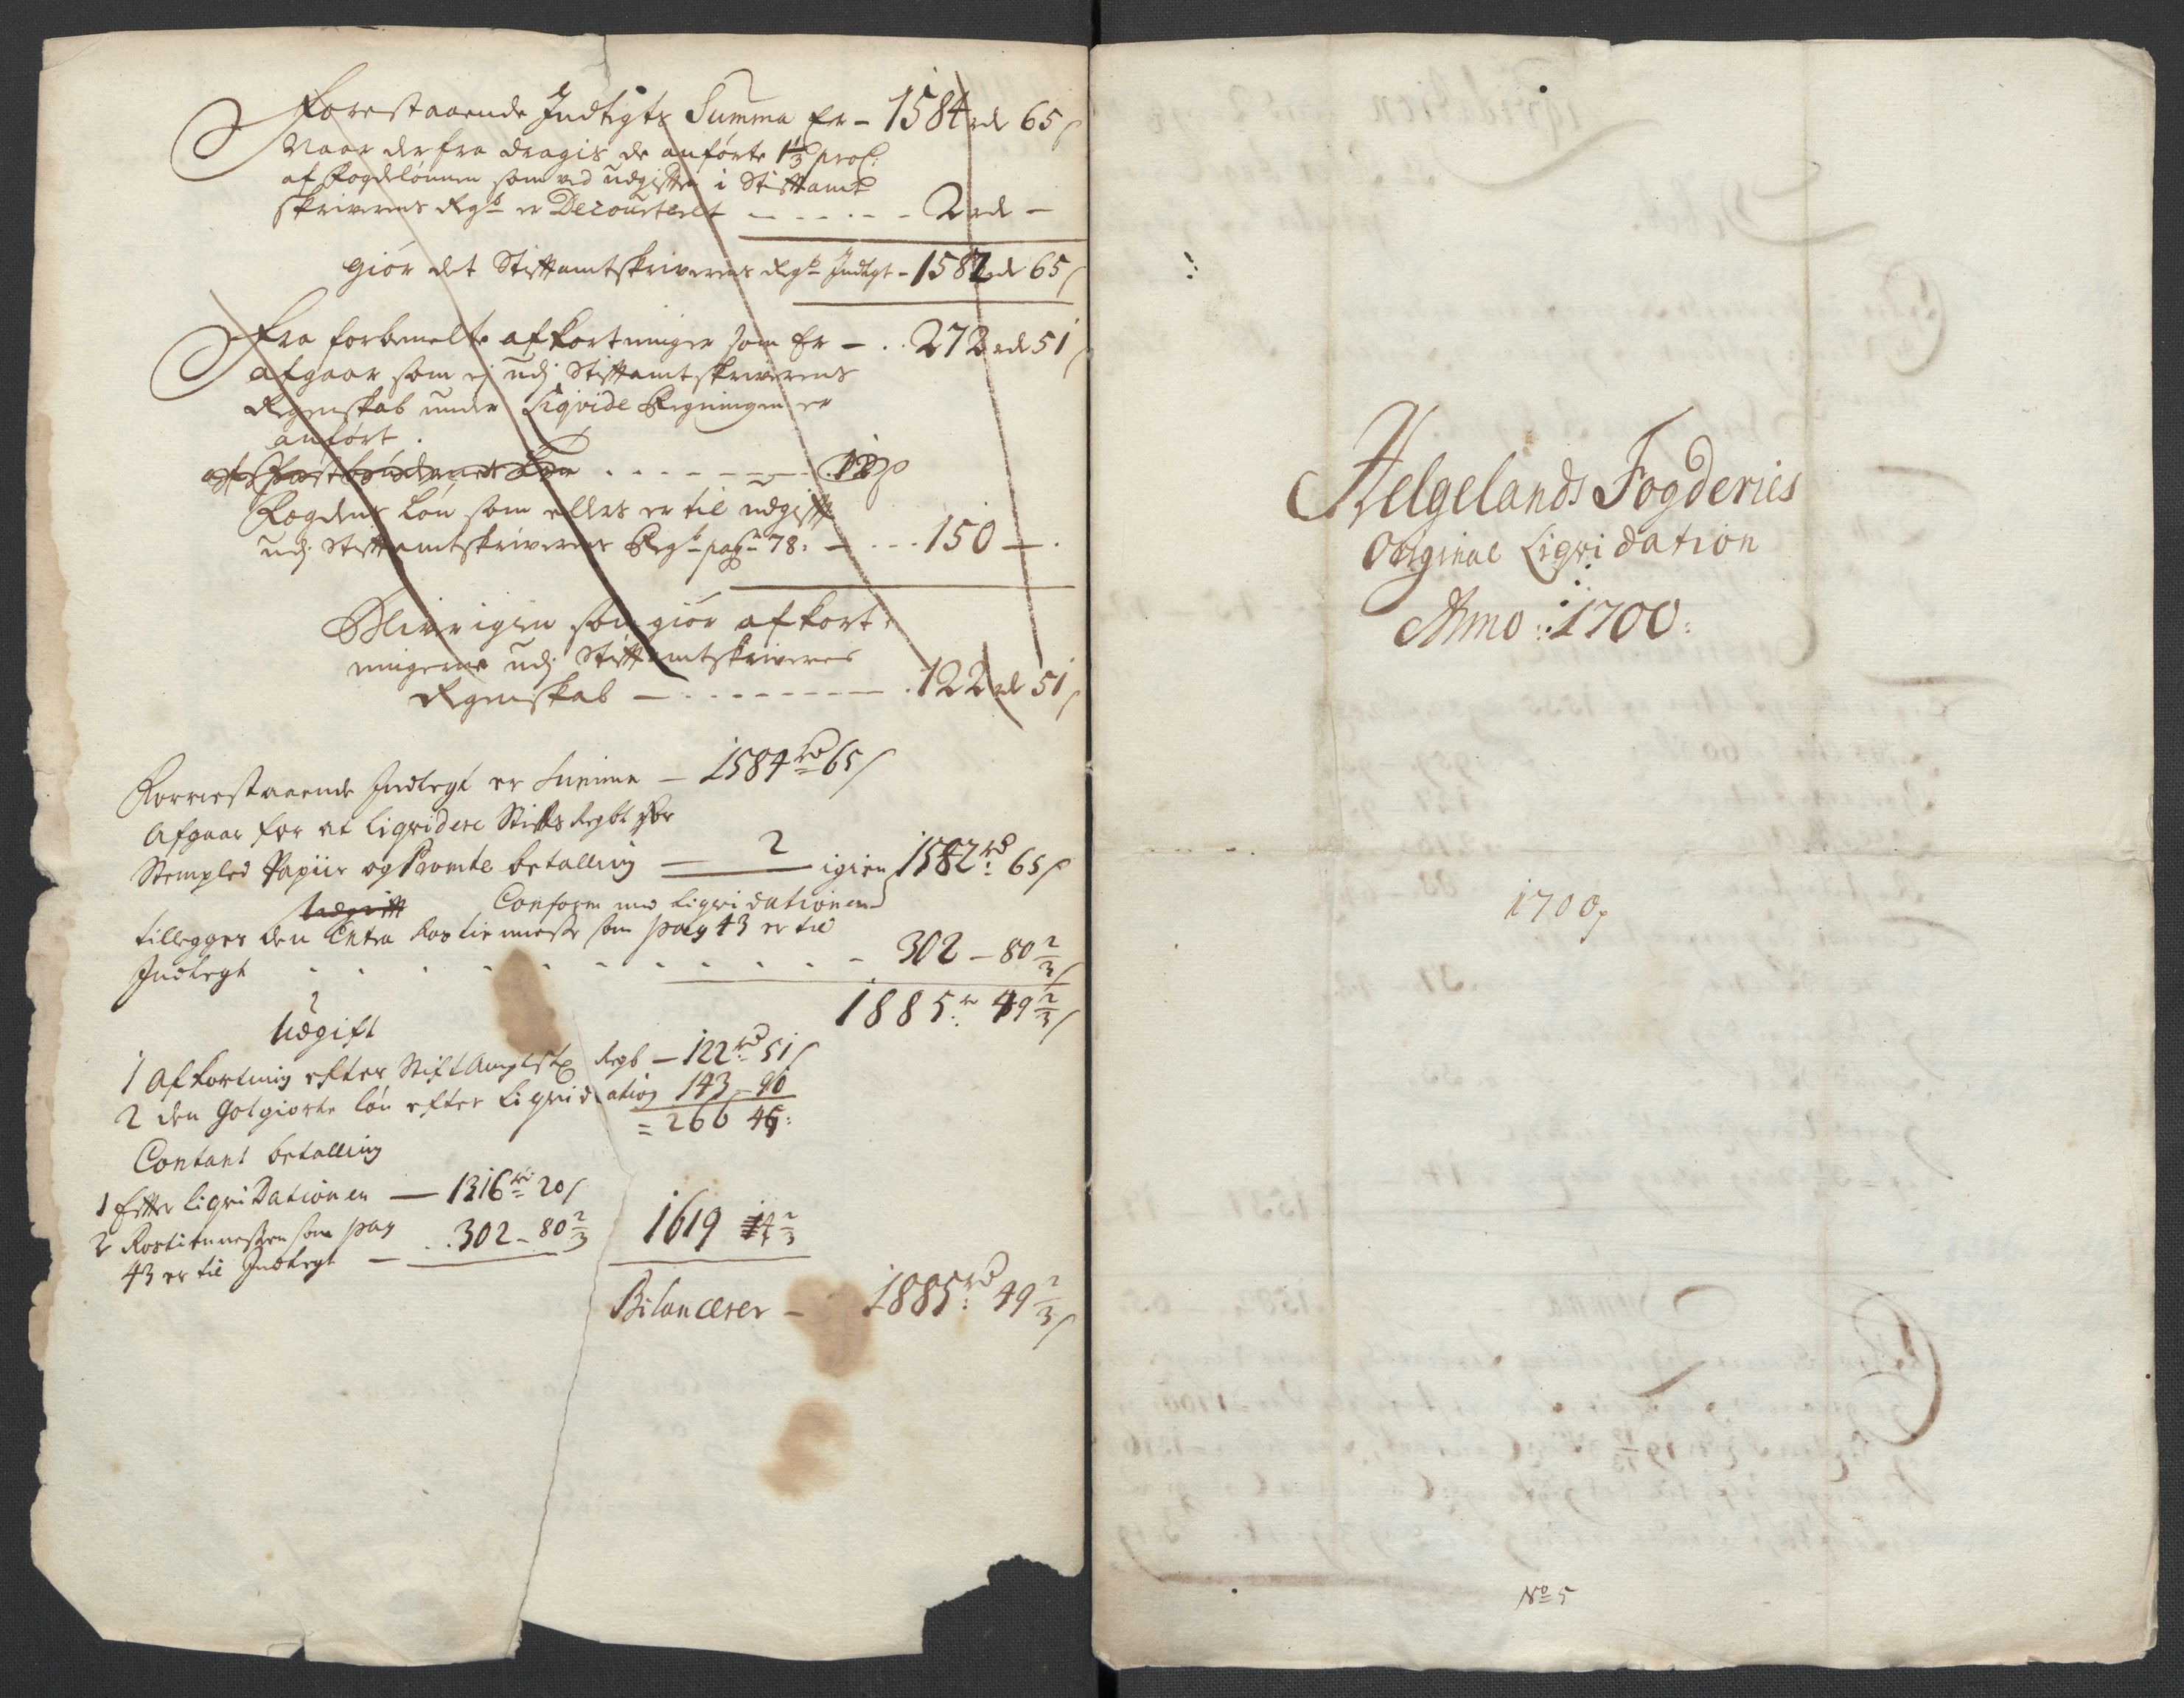 Forestaaende Indtigts Summa Er – 1584 rd 65 s
Naar der fra dragis de anførte 1⅓ proC:
af Fogdelønnen som ved udgiften i Stiftamt
skriverens Regb er Decourteret – – – – – 2 rd –
giør det Stiftamtskriverens Regb Indtegt – 1582 rd 65 s
Fra forbemelte afkortninger som Er – . . 272 rd 51 s
afgaar som ej udj Stiftamtskriverens
Regenskab under Liqvide Regningen er
anført .
Fogdens Løn som ellers er til udgift
udj Stiftamtskriverens Regb pag 78: – . . . 150 – .
Blir igien som giør afkort-
ningerne udj Stiftamtskriveres
Regenskab – . . . . . . – . 122 rd 51 s
Forrestaaende Indtegt er Summa – 1584 rd 65 s
Afgaar for at liqvidere Stifts Regbt for
Stempled Papiir og Promte betalling – 2 – igien 1582 rd: 65 s
Udgift Conform med liqvidationen
tillegges den Extra Rostienneste som pag 43 er til
Indtegt . . . . . . . . . . – 302 – 80⅔ s
1885 r: 49⅔ s
Udgift
1 Afkortning efter StiftAmptsk Regb – 122 rd 51 s
2 den Gotgiorte løn efter Liqvidation 143 – 90
= 266 45:
Contant betalling
1 Efter liqvidationen – 1316 rd 20 s
2 Rostiennesten som pag
43 er til Indtegt – . . 302 – 80⅔ 1619 4⅔
Bilancerer – 1885 rd: 49⅔ s
Helgelands Fogderies
Original Liqvidation
Anno : 1700:
1700
No 5